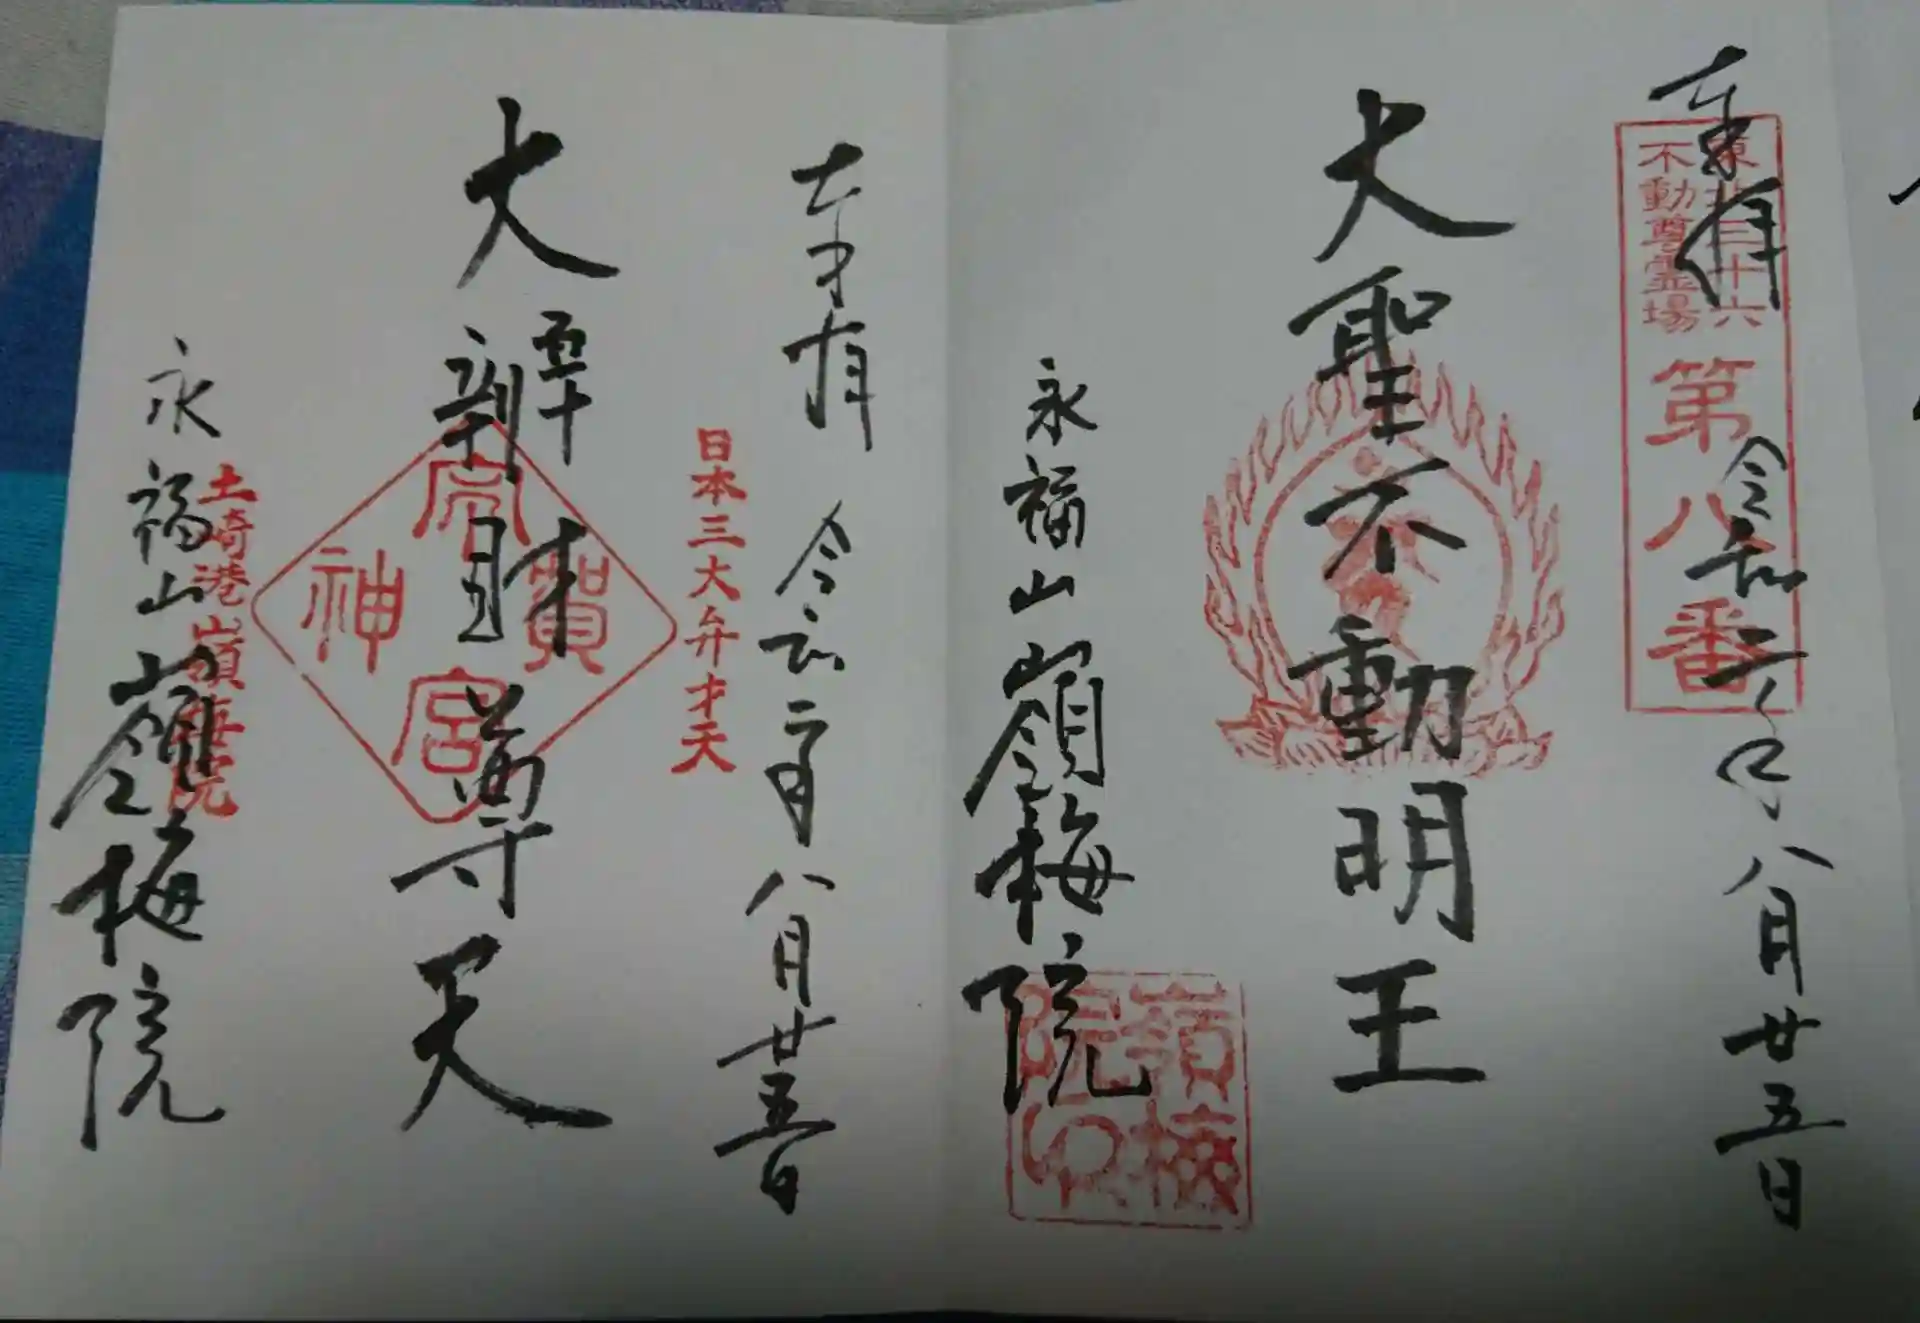 奉拝
東北三十六
不動尊霊場
第八番
令和二年八月廿五日
大聖不動明王
永福山嶺梅院
嶺梅
院印
奉拝
令和二年八月廿五日
日本三大弁才天
大辨財尊天
賀
宮
神
土崎港嶺梅院
永福山嶺梅院